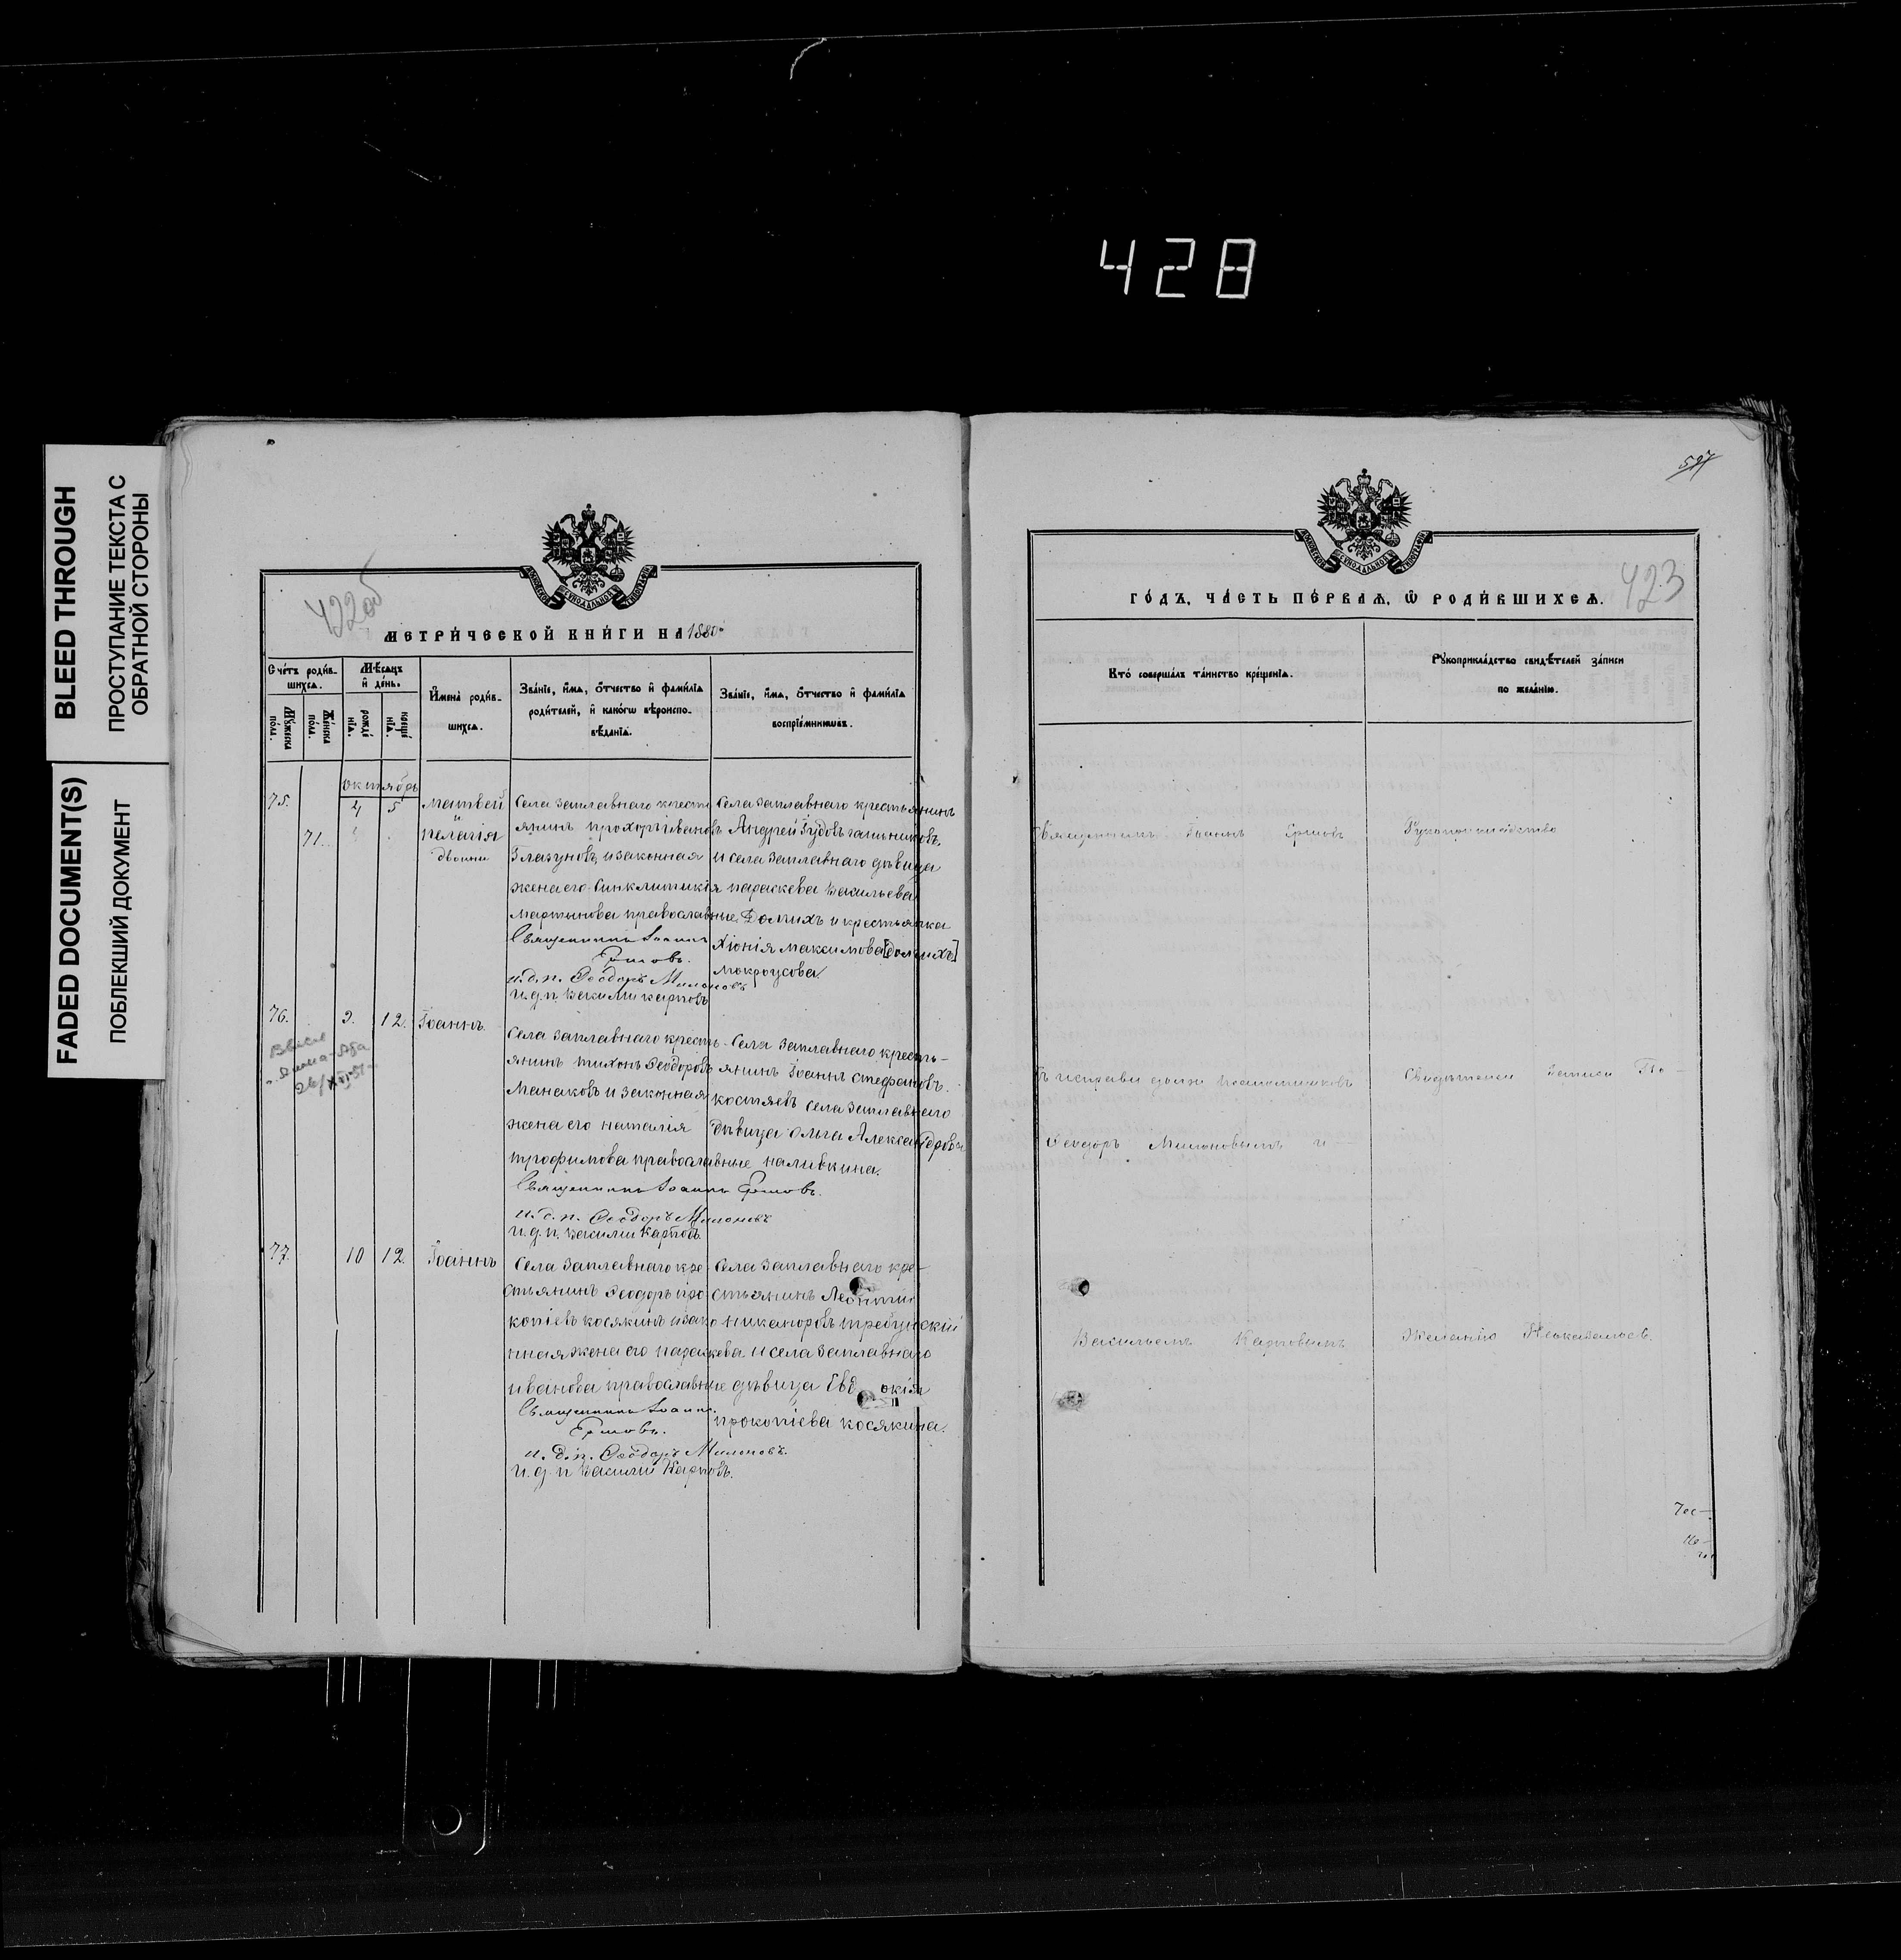 428
BLEED THROUGH
ПРОСТУПАНИЕ ТЕКСТА С
ОБРАТНОЙ СТОРОНЫ
FADED DOCUMENT(S)
ПОБЛЕКШИЙ ДОКУМЕНТ
422об
МЕТРИ́ЧЕСКОЙ КНИ́ГИ НА 1880
Сче́тъ роди́в-
шихсѧ.
Мѣ́сѧцъ
и҆ де́нь.
И҆мена̀ роди́в-
шихсѧ.
Зва́нїе, и҆́мѧ, ѻ҆́тчество и҆ фами́лїѧ
роди́телей, и҆ како́гѡ вѣроиспо-
вѣ́данїѧ.
Зва́нїе, и҆́мѧ, ѻ҆́тчество и҆ фами́лїѧ
воспрїе́мникѡвъ.
Мꙋ́жеска
по́ла.
Же́нска
по́ла.
рожде́
нїѧ.
креще́
нїѧ.
октябрь
75.
4
5
матвей
и
71.
пелагія
двойни
Села Заплавнаго кресть
янинъ прохоръ ивановъ
Глазуновъ, и законная
жена его Синклитикія
Мартынова православные
Священникъ Іоаннъ
Ершовъ.
и.д.п. Ѳеодоръ Милоновъ
и.д.п. Василій Карповъ
Села Заплавнаго крестьянинъ
Андрей
и села Заплавнаго дѣвица
параскева Васильева
Долихъ и крестьянка
Хіонія Максимова [долгихъ]
Мокроусова
76.
9.
12.
Іоаннъ.
Села Заплавнаго кресть-
янинъ тихонъ Ѳеодоровъ
Манаковъ и законная
жена его наталія
трофимова православные
Священникъ Іоаннъ Ершовъ.
и.д.п. Ѳеодоръ Милоновъ
и.д.п. Василій Карповъ
Села Заплавнаго кресть-
янинъ Іоаннъ Стефановъ.
костяевъ села Заплавнаго
дѣвица Ольга Александрова
наливкина.
77.
10
12.
Іоаннъ
Села Заплавнаго кре-
стьянинъ Ѳеодоръ про-
копіевъ косякинъ и зако
нная жена его параскева
иванова православные
Священникъ Іоаннъ
Ершовъ.
и.д.п. Ѳеодоръ Милоновъ.
и.д.п Василій Карповъ.
Села Заплавнаго кре-
стьянинъ Леонтій
никаноровъ требунскій
и села Заплавнаго
дѣвица Евдокія
прокопіева косякина.
423
ГО́ДЪ, ЧА́СТЬ ПЕ́РВАѦ, Ѡ҆ РОДИ́ВШИХСѦ.
Кто̀ соверша́лъ та́инство креще́нїѧ.
Рꙋкоприкла́дство свидѣ́телей за́писи
по жела́нїю.
Священникъ Іоаннъ Ершовъ
Рукоприкладство
Съ исправл должн псаломщиковъ
Свидѣтелей записи По-
Ѳеодоръ Милоновымъ и
Васильемъ Карповымъ
Желанію Неоказалось.